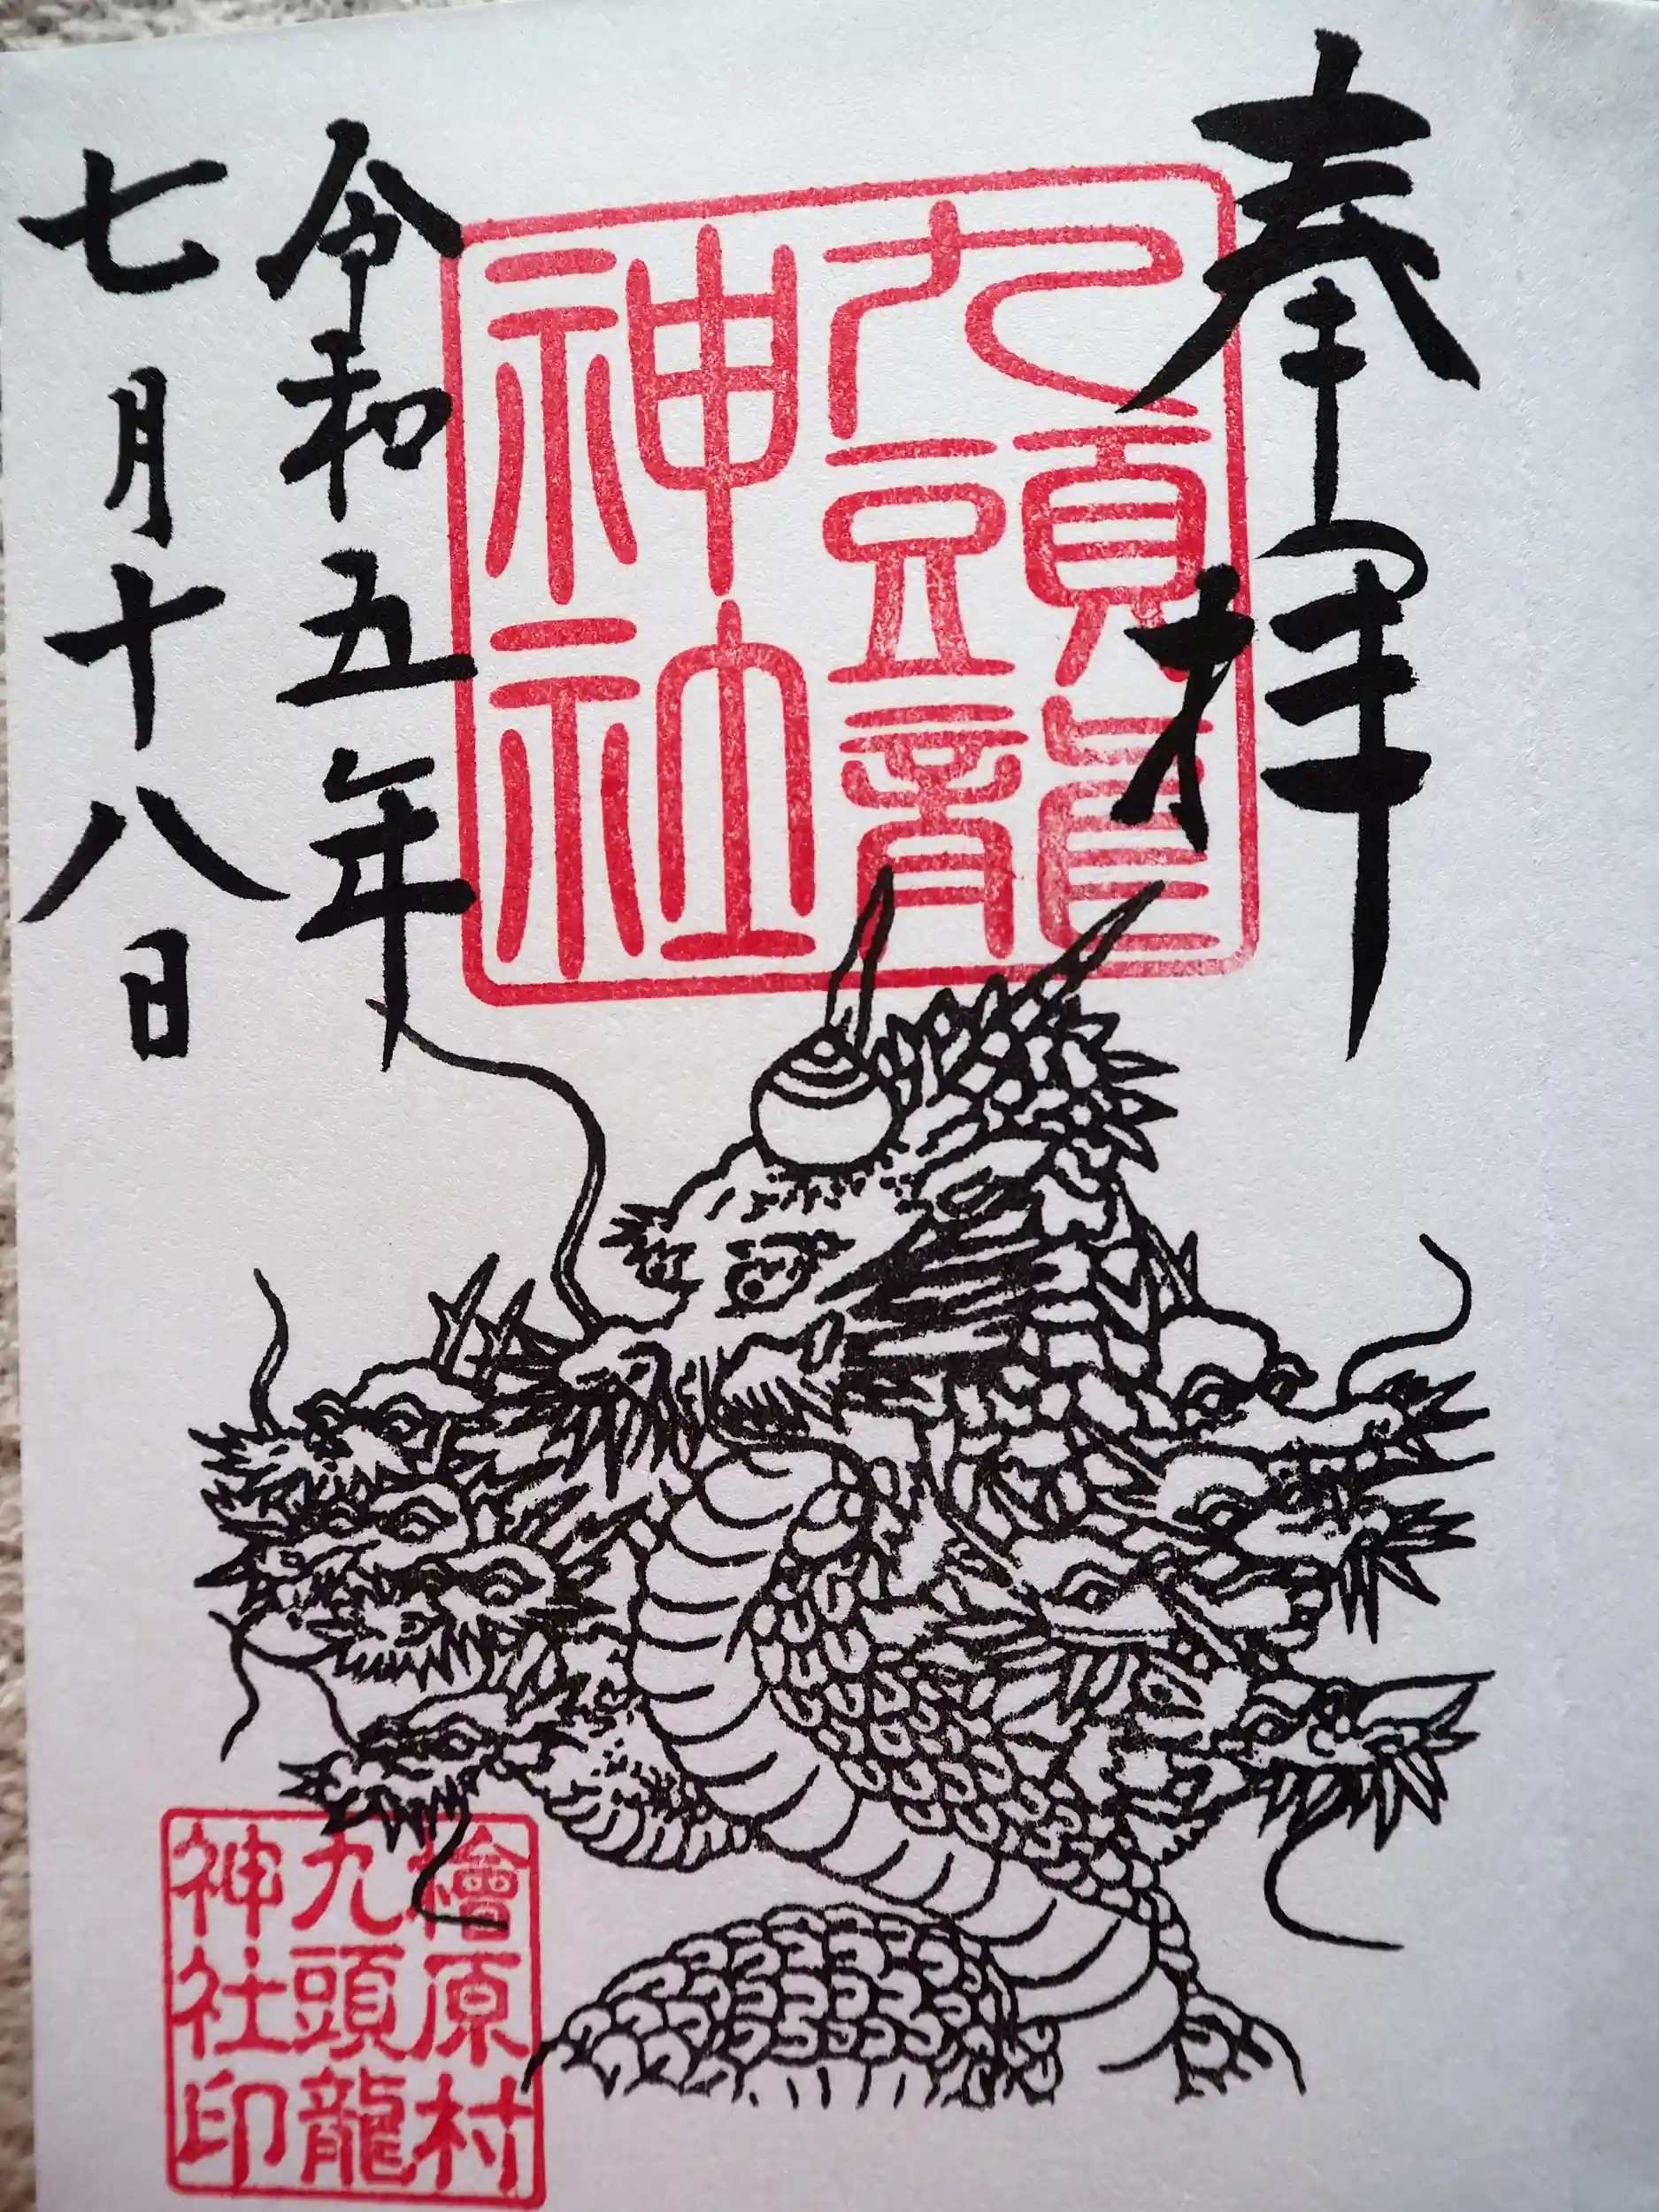 奉拝
九頭龍
神社
令和五年
七月十八日
檜原村
九頭龍
神社印